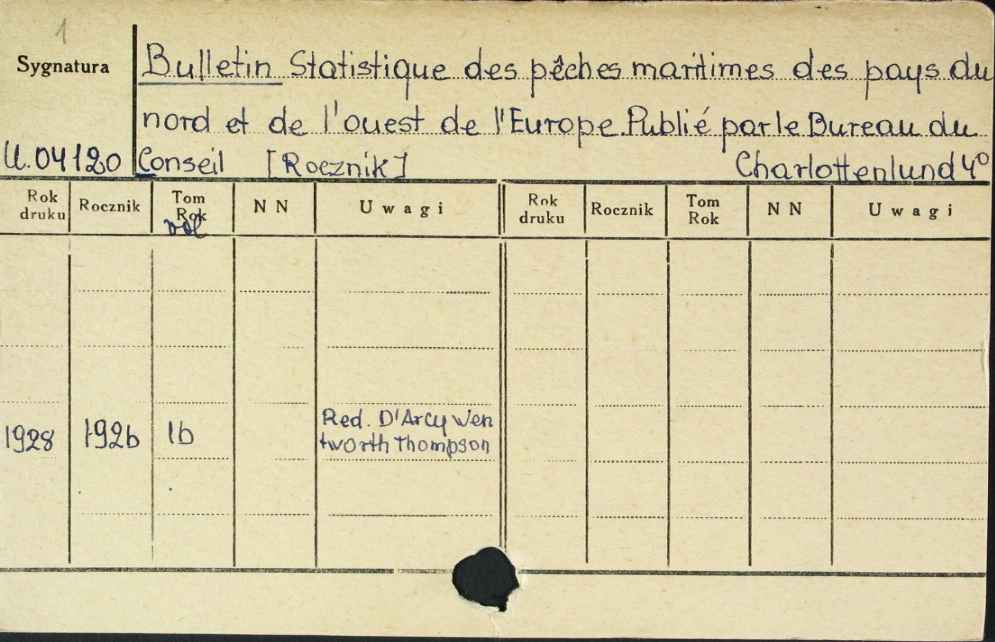 1
Sygnatura
Bulletin Statistique des pêches maritimes des pays du
nord et de l'ouest de l'Europe. Publié par le Bureau du
U.04120 Conseil [Rocznik] Charlottenlund 4°
Rok druku Rocznik Tom Rok vol NN Uwagi Rok druku Rocznik Tom Rok NN Uwagi
1928 1926 16 Red. D'Arcy Wen
tworth Thompson